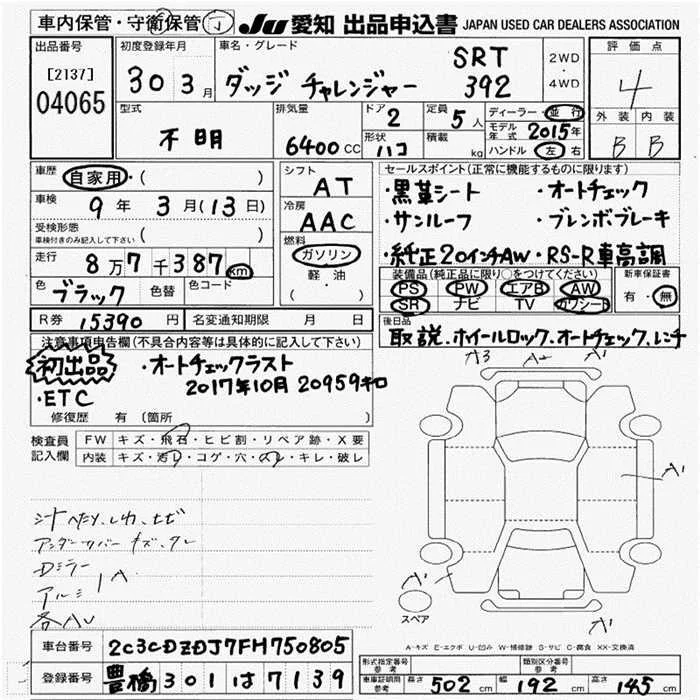 車内保管・守衛保管 J JU 愛知 出品申込書 JAPAN USED CAR DEALERS ASSOCIATION
出品番号 [2137] 04065
初度登録年月 30 3月
車名・グレード ダッジ チャレンジャー SRT 392
2WD・4WD
評価点 4
外装 内装
B B
型式 不明
排気量 6400 CC
ドア 2
定員 5人
形状 ハコ
積載 kg
ディーラー・並行
モデル年式 2015年
ハンドル 左 右
車歴 自家用・( )
車検 9年 3月(13日)
受検形態 車検付きのみ記入して下さい ( )
走行 8万7千387km
色 ブラック 色替 色コード
シフト AT
冷房 AAC
燃料 ガソリン
軽・油
( )
セールスポイント(正常に機能するものに限ります)
・黒革シート ・オートチェック
・サンルーフ ・ブレンボブレーキ
・純正20インチAW・RS-R車高調
装備品(純正品に限り○をつけてください)
PS PW エアB AW
SR ナビ TV カワシート
新車保証書
有・無
R券 15390円 名変通知期限 月 日
後日品 取説、ホイールロック、オートチェック、レンチ
注意事項申告欄(不具合内容等は具体的に記入して下さい)
初出品 ・オートチェックラスト
2017年10月 20959キロ
・ETC
修復歴 有 (箇所 )
検査員記入欄
FW キズ・飛石・ヒビ割・リペア跡・X要
内装 キズ・汚れ・コゲ・穴・スレ・キレ・破レ
アンダーカバー キズ、ワレ
Dミラー
アルミ A
A3 A2 A1
A1
A1
A1
スペア
A-キズ E-エクボ U-凹み W-補修跡 S-サビ C-腐食 XX-交換済
車台番号 2C3CDZDJ7FH750805
登録番号 豊橋 301 は 7139
形式指定番号 参考
類別区分番号 参考
車車証明用 参考 長さ 502 cm 幅 192 cm 高さ 145 cm